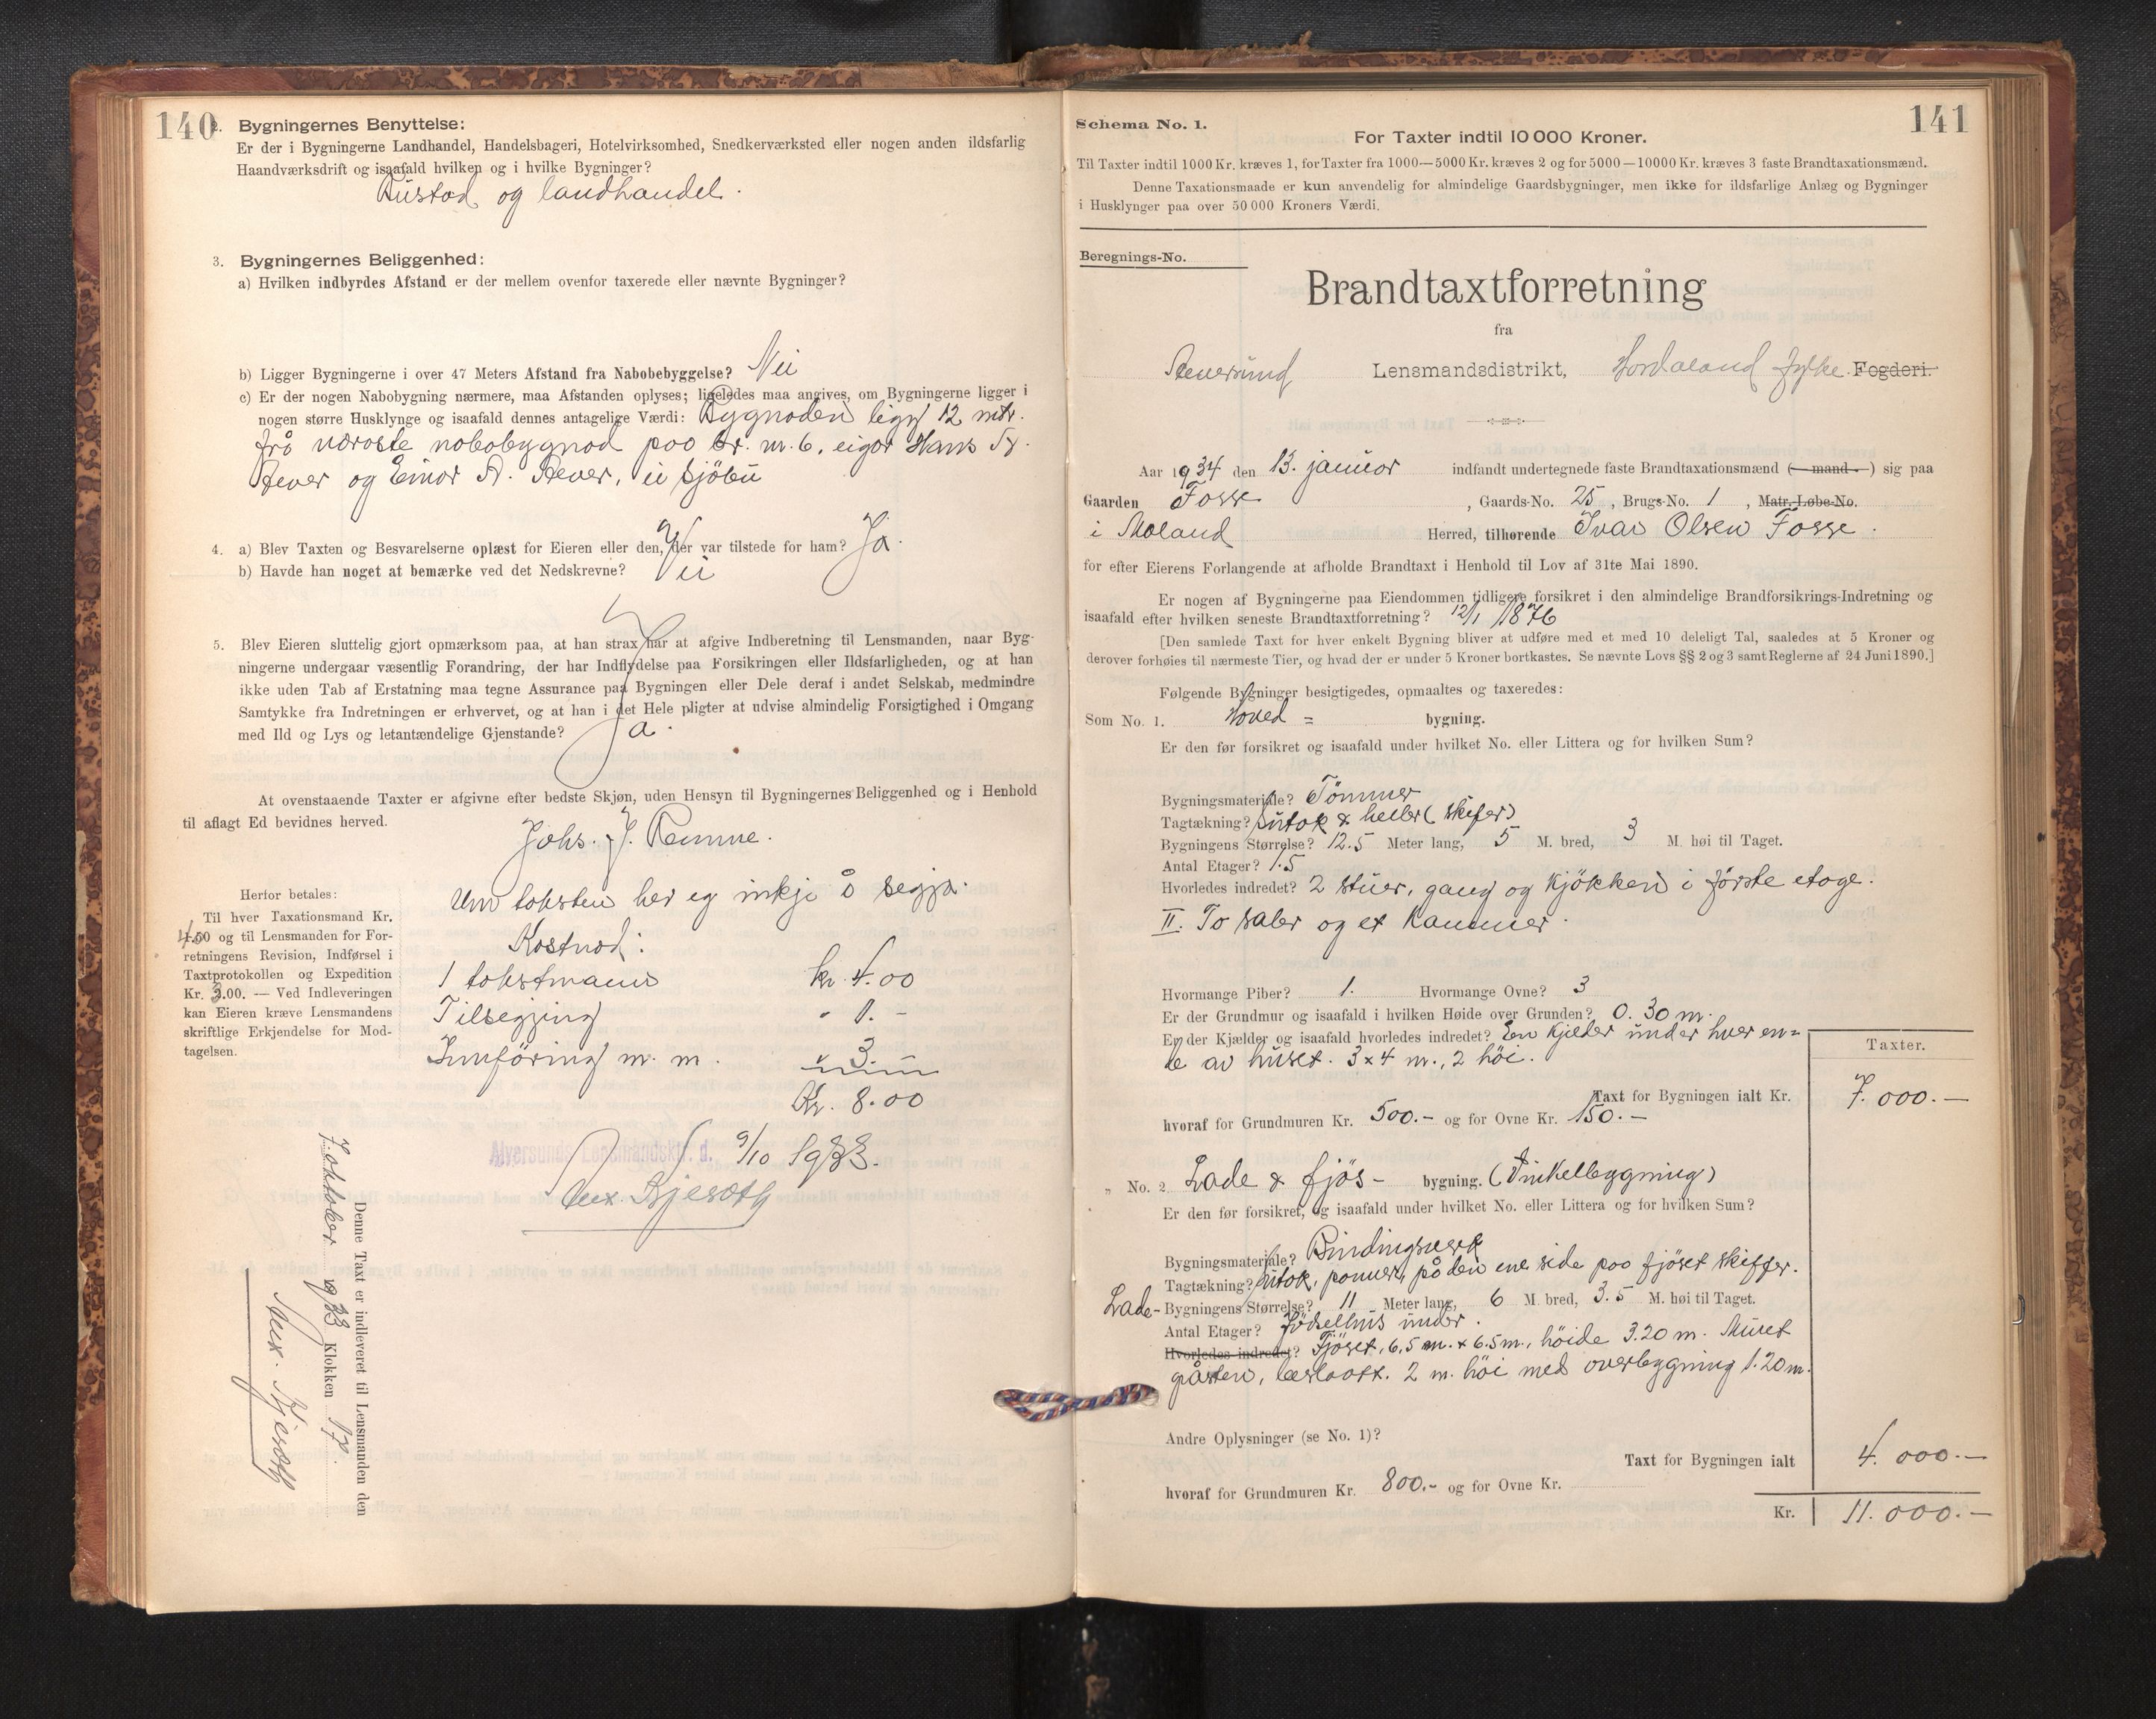 140
2. Bygningernes Benyttelse:
Er der i Bygningerne Landhandel, Handelsbageri, Hotelvirksomhed, Snedkerværksted eller nogen anden ildsfarlig
Haandværksdrift og isaafald hvilken og i hvilke Bygninger?
Bustad og landhandel.
3. Bygningernes Beliggenhed:
a) Hvilken indbyrdes Afstand er der mellem ovenfor taxerede eller nævnte Bygninger?
b) Ligger Bygningerne i over 47 Meters Afstand fra Nabobebyggelse? Nei
c) Er der nogen Nabobygning nærmere, maa Afstanden oplyses; ligeledes maa angives, om Bygningerne ligger i
nogen større Husklynge og isaafald dennes antagelige Værdi: Bygnaden ligg 12 mtr.
frå næraste nabobygnad paa br. nr. 6, eigar Hans
og Einar A. , ei sjöbu
4. a) Blev Taxten og Besvarelserne oplæst for Eieren eller den, der var tilstede for ham? Ja.
b) Havde han noget at bemærke ved det Nedskrevne? Nei
5. Blev Eieren sluttelig gjort opmærksom paa, at han strax har at afgive Indberetning til Lensmanden, naar Byg-
ningerne undergaar væsentlig Forandring, der har Indflydelse paa Forsikringen eller Ildsfarligheden, og at han
ikke uden Tab af Erstatning maa tegne Assurance paa Bygningen eller Dele deraf i andet Selskab, medmindre
Samtykke fra Indretningen er erhvervet, og at han i det Hele pligter at udvise almindelig Forsigtighed i Omgang
med Ild og Lys og letantændelige Gjenstande? Ja.
At ovenstaaende Taxter er afgivne efter bedste Skjøn, uden Hensyn til Bygningernes Beliggenhed og i Henhold
til aflagt Ed bevidnes herved.
Johs. J. Remme.
Herfor betales:
Til hver Taxationsmand Kr.
4.00 og til Lensmanden for For-
retningens Revision, Indførsel i
Taxtprotokollen og Expedition
Kr. 3.00. — Ved Indleveringen
kan Eieren kræve Lensmandens
skriftlige Erkjendelse for Mod-
tagelsen.
Um taksten her eg inkje å segja.
Kostnad:
1 takstmann kr. 4.00
Tilsegjing " 1.-
Innföring m. m. " 3.-
Kr. 8.00
Alversunds Lensmandsktr. d. 9/10 1933.
Denne Taxt er indleveret til Lensmanden den
7 oktober 1933 Klokken 17.
141
Schema No. 1.
For Taxter indtil 10 000 Kroner.
Til Taxter indtil 1000 Kr. kræves 1, for Taxter fra 1000—5000 Kr. kræves 2 og for 5000—10000 Kr. kræves 3 faste Brandtaxationsmænd.
Denne Taxationsmaade er kun anvendelig for almindelige Gaardsbygninger, men ikke for ildsfarlige Anlæg og Bygninger
i Husklynger paa over 50 000 Kroners Værdi.
Beregnings-No.
Brandtaxtforretning
fra
Lensmandsdistrikt, Hordaland fylke. Fogderi.
Aar 1934 den 13. januar indfandt undertegnede faste Brandtaxationsmænd (—mand—) sig paa
Gaarden Fosse, Gaards-No. 25, Brugs-No. 1, Matr.-Løbe-No.
i Mæland Herred, tilhørende Ivar Olsen Fosse.
for efter Eierens Forlangende at afholde Brandtaxt i Henhold til Lov af 31te Mai 1890.
Er nogen af Bygningerne paa Eiendommen tidligere forsikret i den almindelige Brandforsikrings-Indretning og
isaafald efter hvilken seneste Brandtaxtforretning? 12/1 1876
[Den samlede Taxt for hver enkelt Bygning bliver at udføre med et med 10 deleligt Tal, saaledes at 5 Kroner og
derover forhøies til nærmeste Tier, og hvad der er under 5 Kroner bortkastes. Se nævnte Lovs §§ 2 og 3 samt Reglerne af 24 Juni 1890.]
Følgende Bygninger besigtigedes, opmaaltes og taxeredes:
Som No. 1. Hoved = bygning.
Er den før forsikret og isaafald under hvilket No. eller Littera og for hvilken Sum?
Bygningsmateriale? Tömmer
Tagtækning? Sutak & heller (skifer)
Bygningens Størrelse? 12.5 Meter lang, 5 M. bred, 3 M. høi til Taget.
Antal Etager? 1.5
Hvorledes indredet? 2 stuer, gang og kjökken i förste etage.
II. To saler og et kammer.
Hvormange Piber? 1. Hvormange Ovne? 3
Er der Grundmur og isaafald i hvilken Høide over Grunden? 0.30 m.
Er der Kjælder og isaafald hvorledes indredet? En kjelder under hver en=
de av huset. 3×4 m., 2 höi.
Taxter.
Taxt for Bygningen ialt Kr. 7.000.—
hvoraf for Grundmuren Kr. 500.- og for Ovne Kr. 150.—
„ No. 2 Lade & fjös- bygning. (Vinkelbygning)
Er den før forsikret, og isaafald under hvilket No. eller Littera og for hvilken Sum?
Bygningsmateriale? Bindingsverk
Tagtækning? Sutak, panner, på den ene side paa fjöset skiffer.
Lade- Bygningens Størrelse? 11 Meter lang, 6 M. bred, 3.5 M. høi til Taget.
Antal Etager? Födselhus under.
Hvorledes indredet? Fjöset, 6,5 m. x 6.5 m., höide 3.20 m. Muret
2 m. höi med overbygning 1.20 m.
Andre Oplysninger (se No. 1)?
Taxt for Bygningen ialt 4.000.—
hvoraf for Grundmuren Kr. 800.- og for Ovne Kr.
Kr. 11.000.—